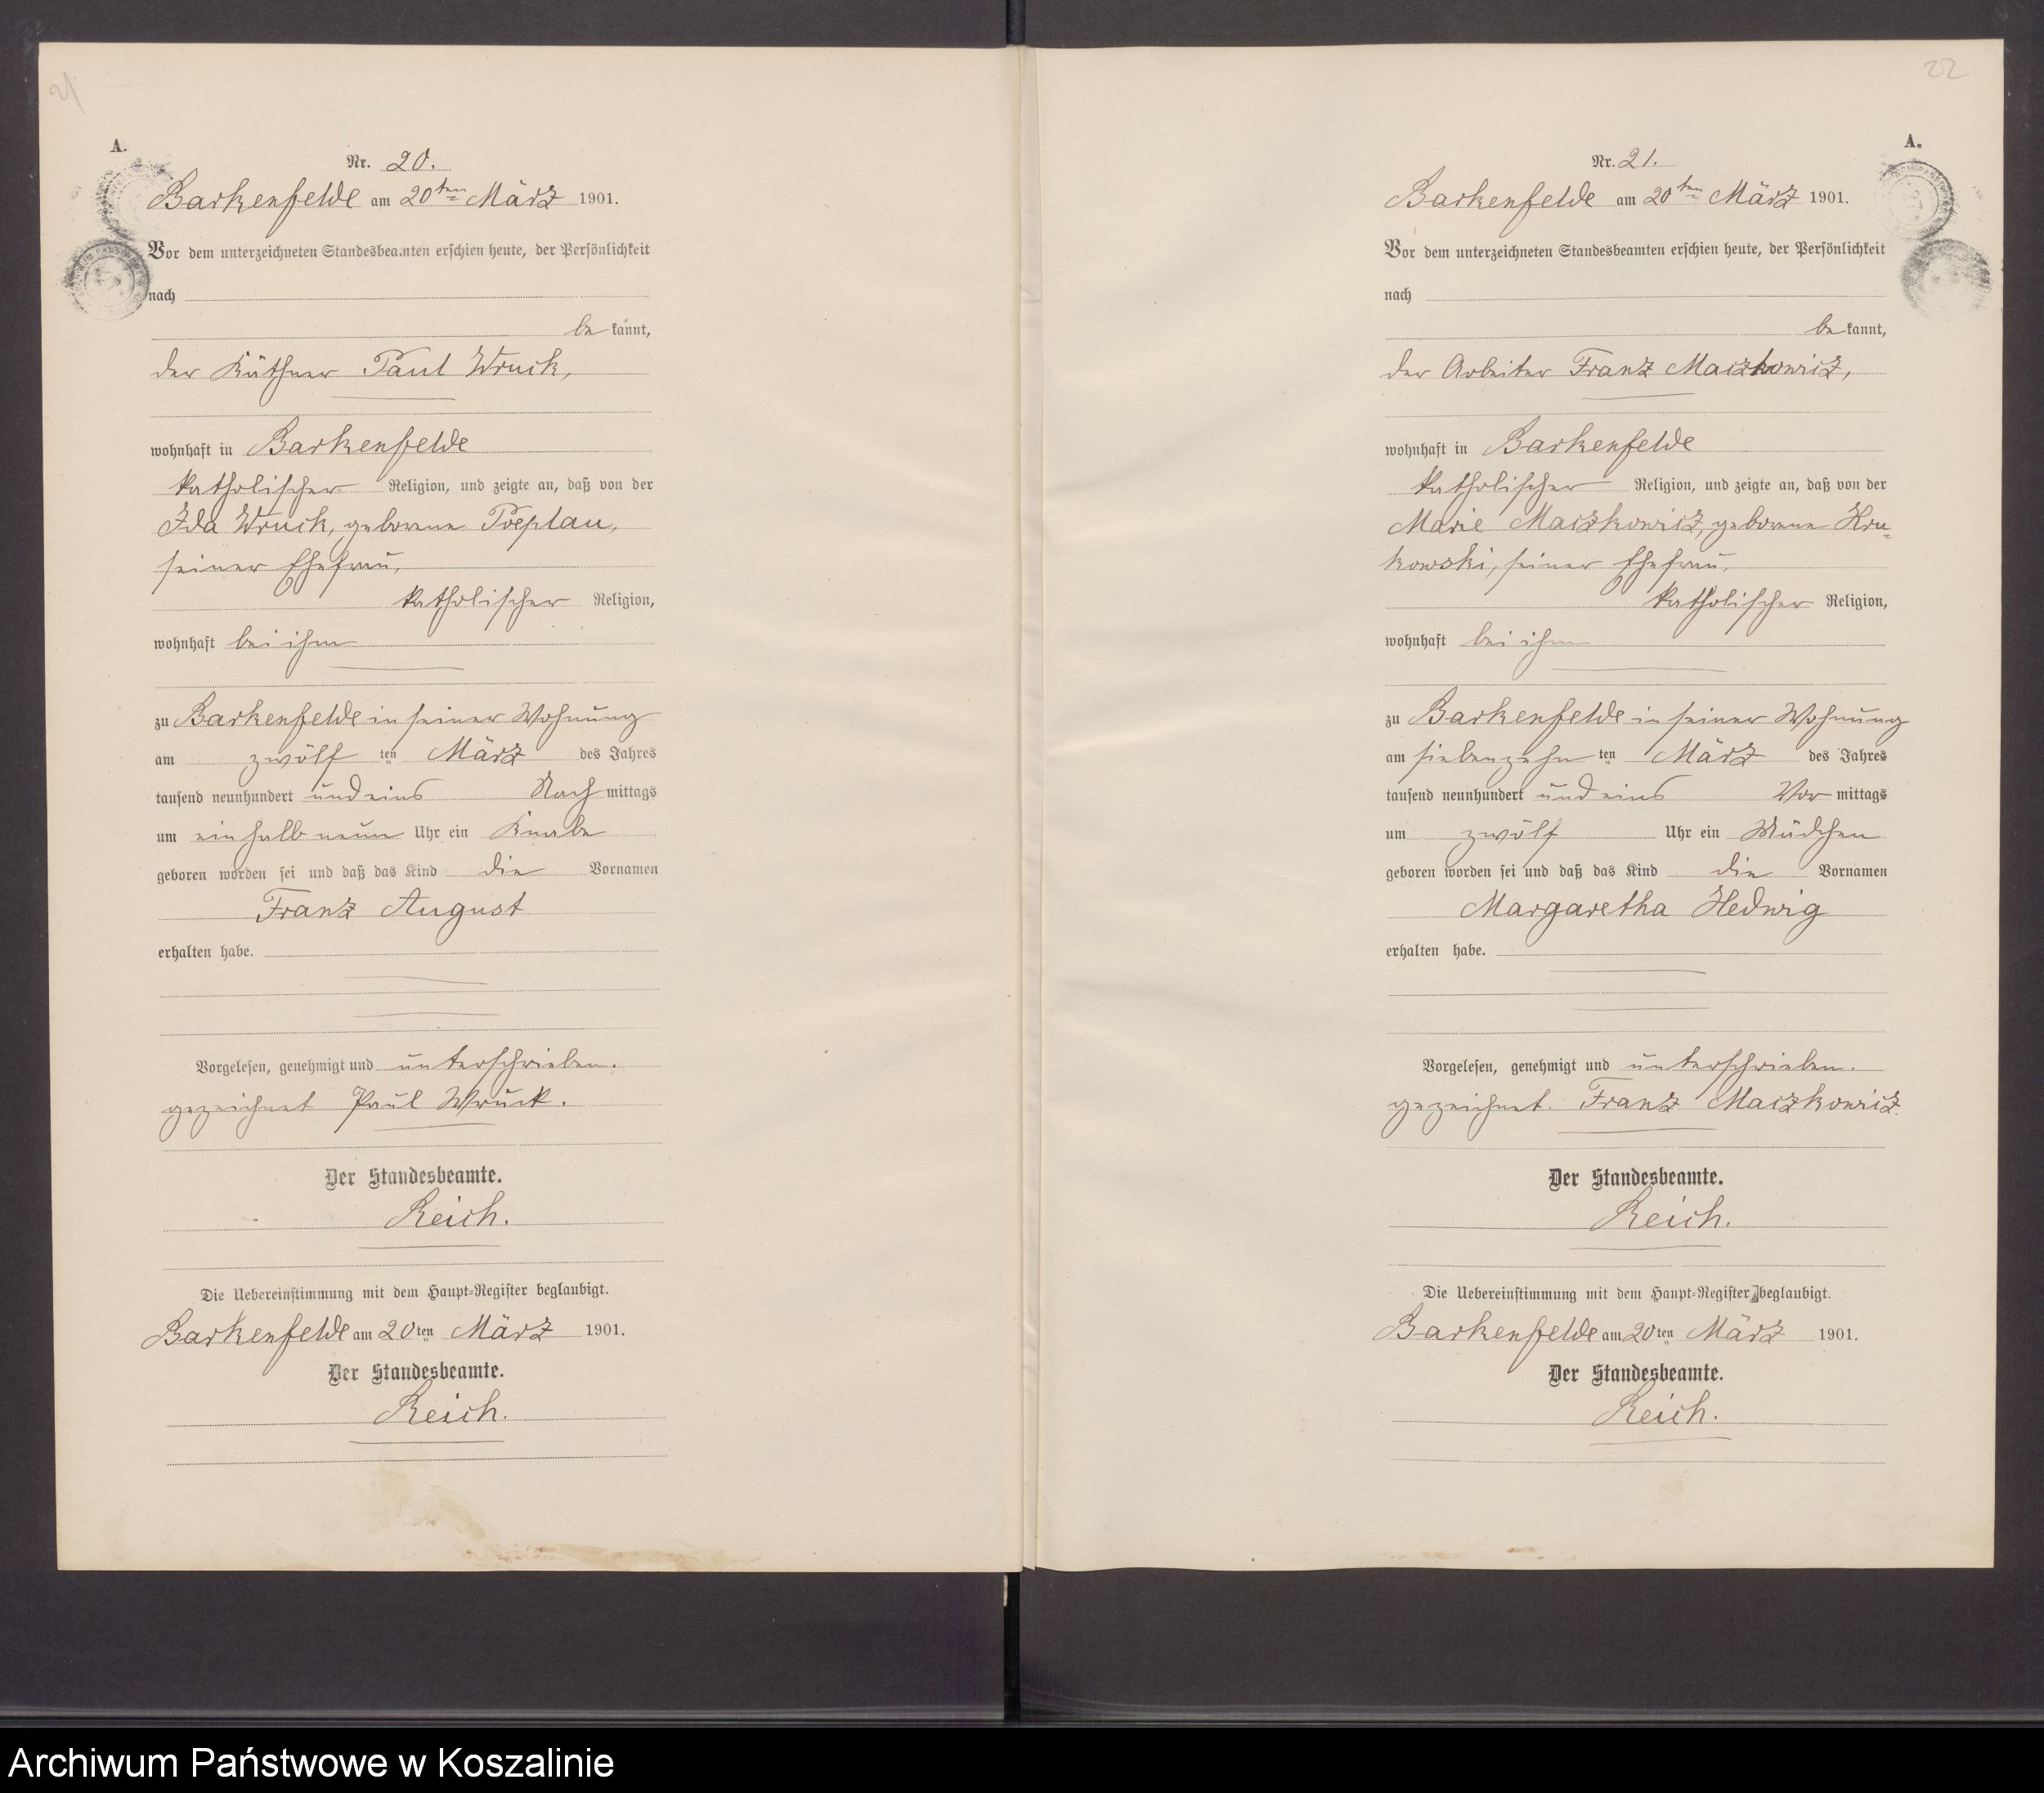 21
A.
Nr. 20.
Barkenfelde am 20ten März 1901.
Vor dem unterzeichneten Standesbeamten erschien heute, der Persönlichkeit
nach
be kannt,
der Käthner Paul Wruck,
wohnhaft in Barkenfelde
katholischer Religion, und zeigte an, daß von der
Ida Wruck, geborene Poeplau,
seiner Ehefrau,
katholischer Religion,
wohnhaft bei ihm
zu Barkenfelde in seiner Wohnung
am zwölf ten März des Jahres
tausend neunhundert und eins Nach mittags
um ein halb neun Uhr ein Knabe
geboren worden sei und daß das Kind die Vornamen
Franz August
erhalten habe.
Vorgelesen, genehmigt und unterschrieben.
gezeichnet Paul Wruck.
Der Standesbeamte.
Reich.
Die Uebereinstimmung mit dem Haupt-Register beglaubigt.
Barkenfelde am 20ten März 1901.
Der Standesbeamte.
Reich.
22
A.
Nr. 21.
Barkenfelde am 20ten März 1901.
Vor dem unterzeichneten Standesbeamten erschien heute, der Persönlichkeit
nach
be kannt,
der Arbeiter Franz Maczkowicz,
wohnhaft in Barkenfelde
katholischer Religion, und zeigte an, daß von der
Marie Maczkowicz, geborene Kru-
kowski, seiner Ehefrau,
katholischer Religion,
wohnhaft bei ihm
zu Barkenfelde in seiner Wohnung
am siebenzehn ten März des Jahres
tausend neunhundert und eins Vor mittags
um zwölf Uhr ein Mädchen
geboren worden sei und daß das Kind die Vornamen
Margaretha Hedwig
erhalten habe.
Vorgelesen, genehmigt und unterschrieben.
gezeichnet. Franz Maczkowicz.
Der Standesbeamte.
Reich.
Die Uebereinstimmung mit dem Haupt-Register beglaubigt.
Barkenfelde am 20ten März 1901.
Der Standesbeamte.
Reich.
Archiwum Państwowe w Koszalinie